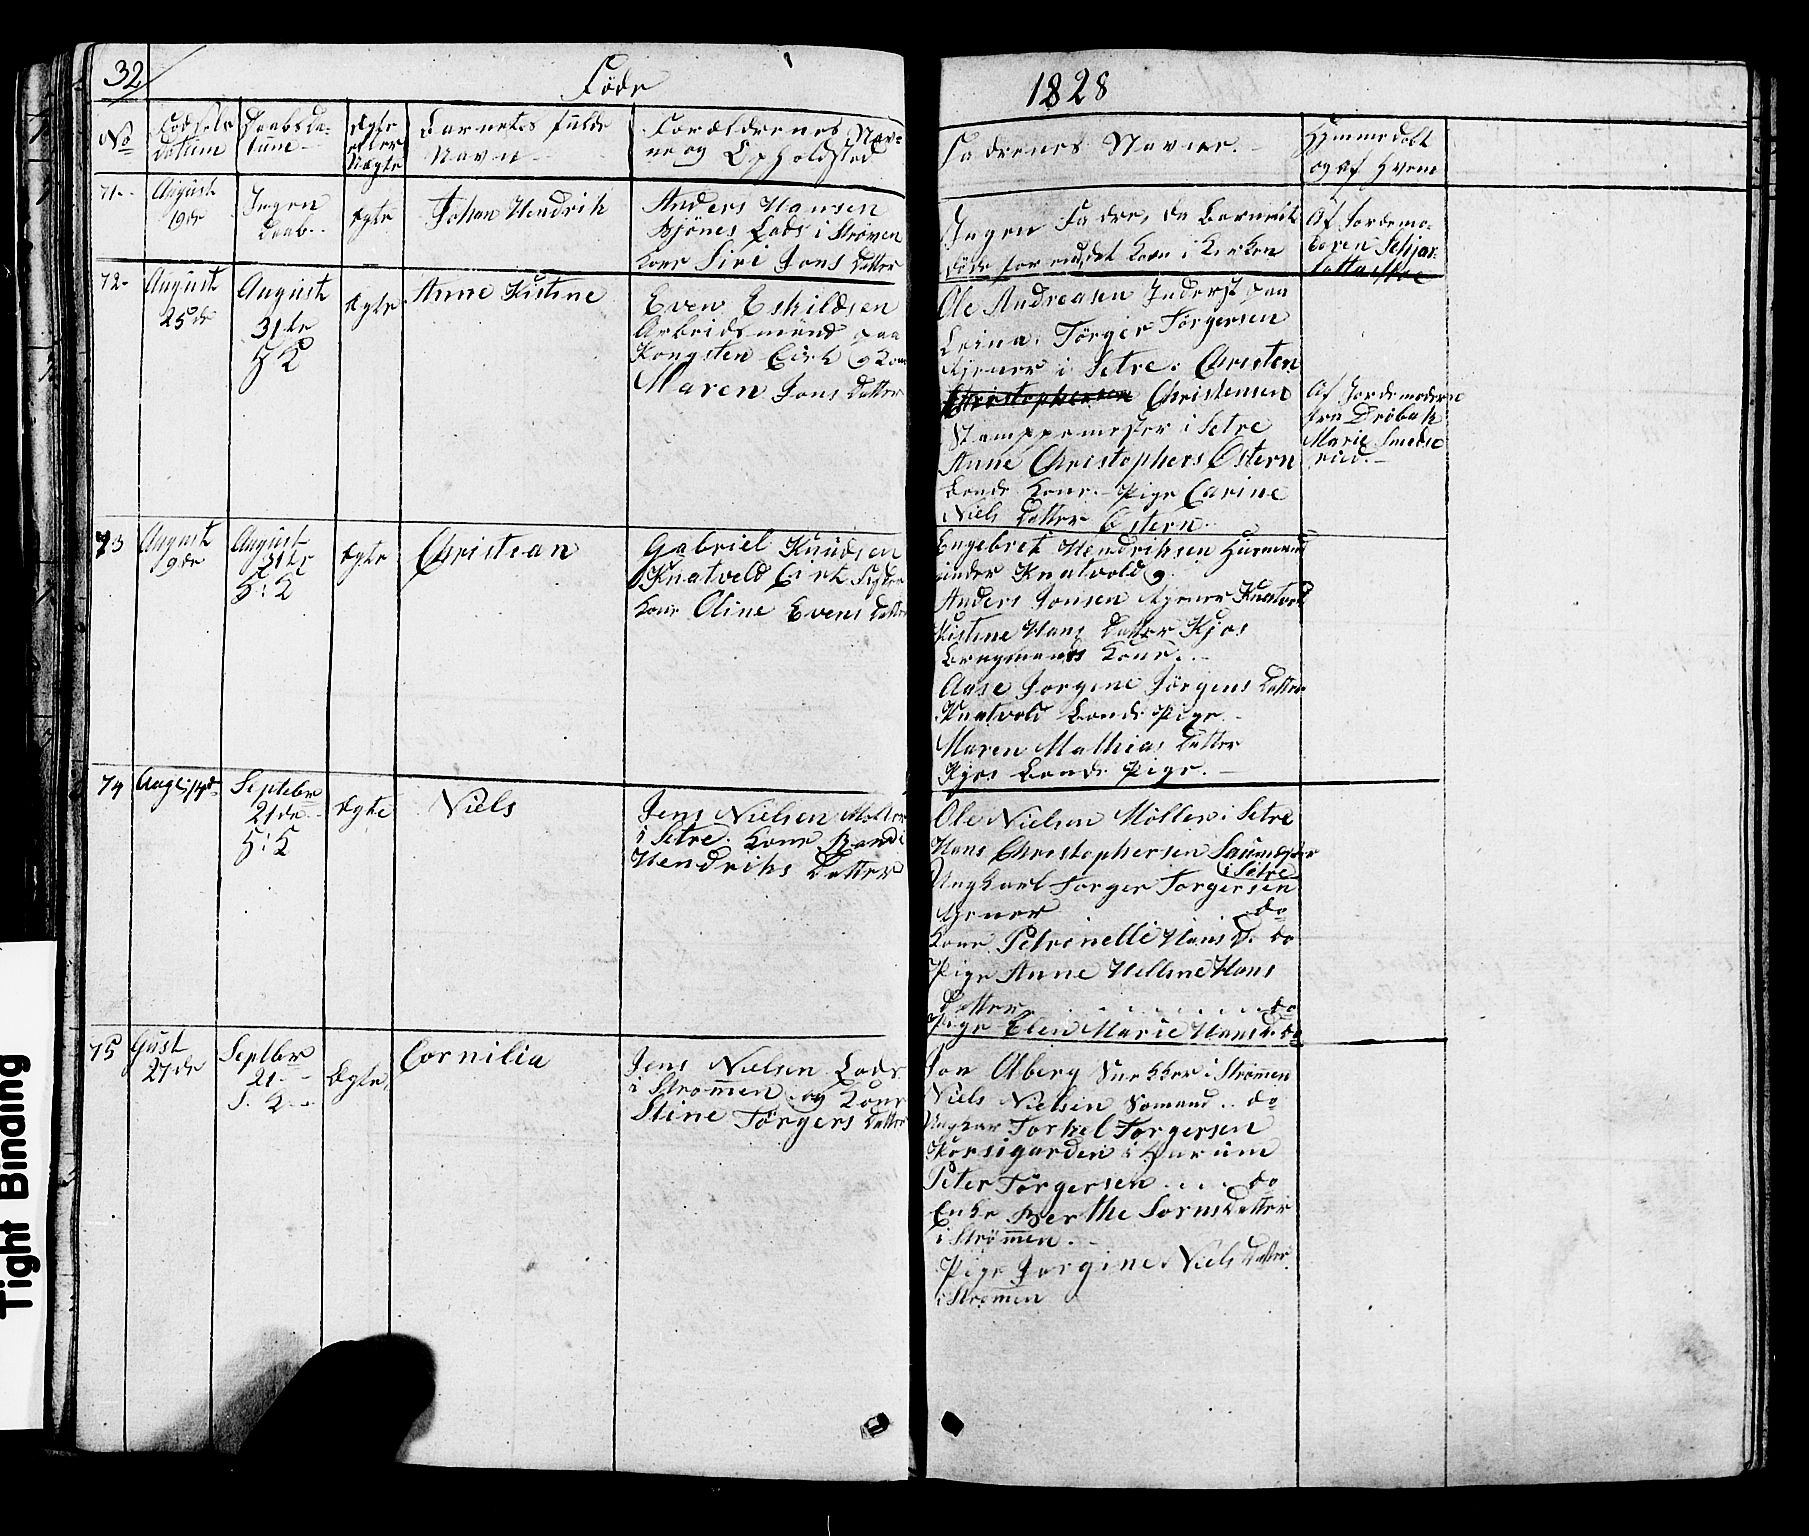 32
Föde
1828
No
Födsels Datum
Daabs Datum
Ægte eller Uægte
Barnets fulde Navn
Forældrenes Navne og Opholdsted
Fadrenes Navne.
Hjemmedøbt og af Hvem
71-
August
19de
Ingen
Daab.
Ægte
Johan Hendrik
Anders Hansen
Bjönes Lods i Strömen
Kone Siri Jons Datter
Ingen Fadre, da Barnet
döde förend det kom i Kirken
Af Jordemo-
72-
August
25de
August
31te
Ægte
Anne Kistine
Even Eskildsen
Arbeidsmand paa
Kongsten Eie og Kone
Maren Jons Datter
Ole Andreasen Inderst paa
Leina. Törger Törgersen
tjener i Setre. Christen
Christophersen Christensen
Stampemester i Setre
Anne Christophers Östern
Bonde Kone. Pige Carine
Niels Datter Östern.
Af Jordemoderen
fra Dröbak
Marie Smeds-
rud.
73
August
9de
August
31te
Ægte
Christian
Gabriel Knudsen
Knatvold
Kone Oline Evens Datter
Engebret Hendriksen Husmand
under Knatvold
Anders Jonsen tjener Knatvold
Kistine Hans Datter Kjos
Brugmands Kone.
Aase Jorgine Jörgens Datter
Knatvold Bonde Pige.
Maren Mathias Datter
Kjos Bonde Pige.
74
Septebr
21de
Ægte
Niels
Jens Nielsen Möller
i Setre. Kone Randi
Hendriks Datter
Ole Nielsen Möller i Setre
Hans Christophersen Saugmester
i Setre
Ungkarl Torger Torgersen
tjener do
Kone Petronelle Hans D. do
Pige Anne Helline Hans
Datter . . . . . . do
Pige Elen Marie Hans D. do
75
Gust
27de
Septbr
21
Ægte
Cornilia
Jens Nielsen Lods
i Strömmen og Kone
Stine Törgers Datter
Jon Åberg Snekker i Strömmen
Niels Nielsen Sömand .. do
Ungkar Torkel Torgersen
i Hurum
Peter Törgersen . . . do
Enke Berthe Sörensdatter
i Strömmen.
Pige Jorgine Niels Datter
i Strömmen
Tight Binding